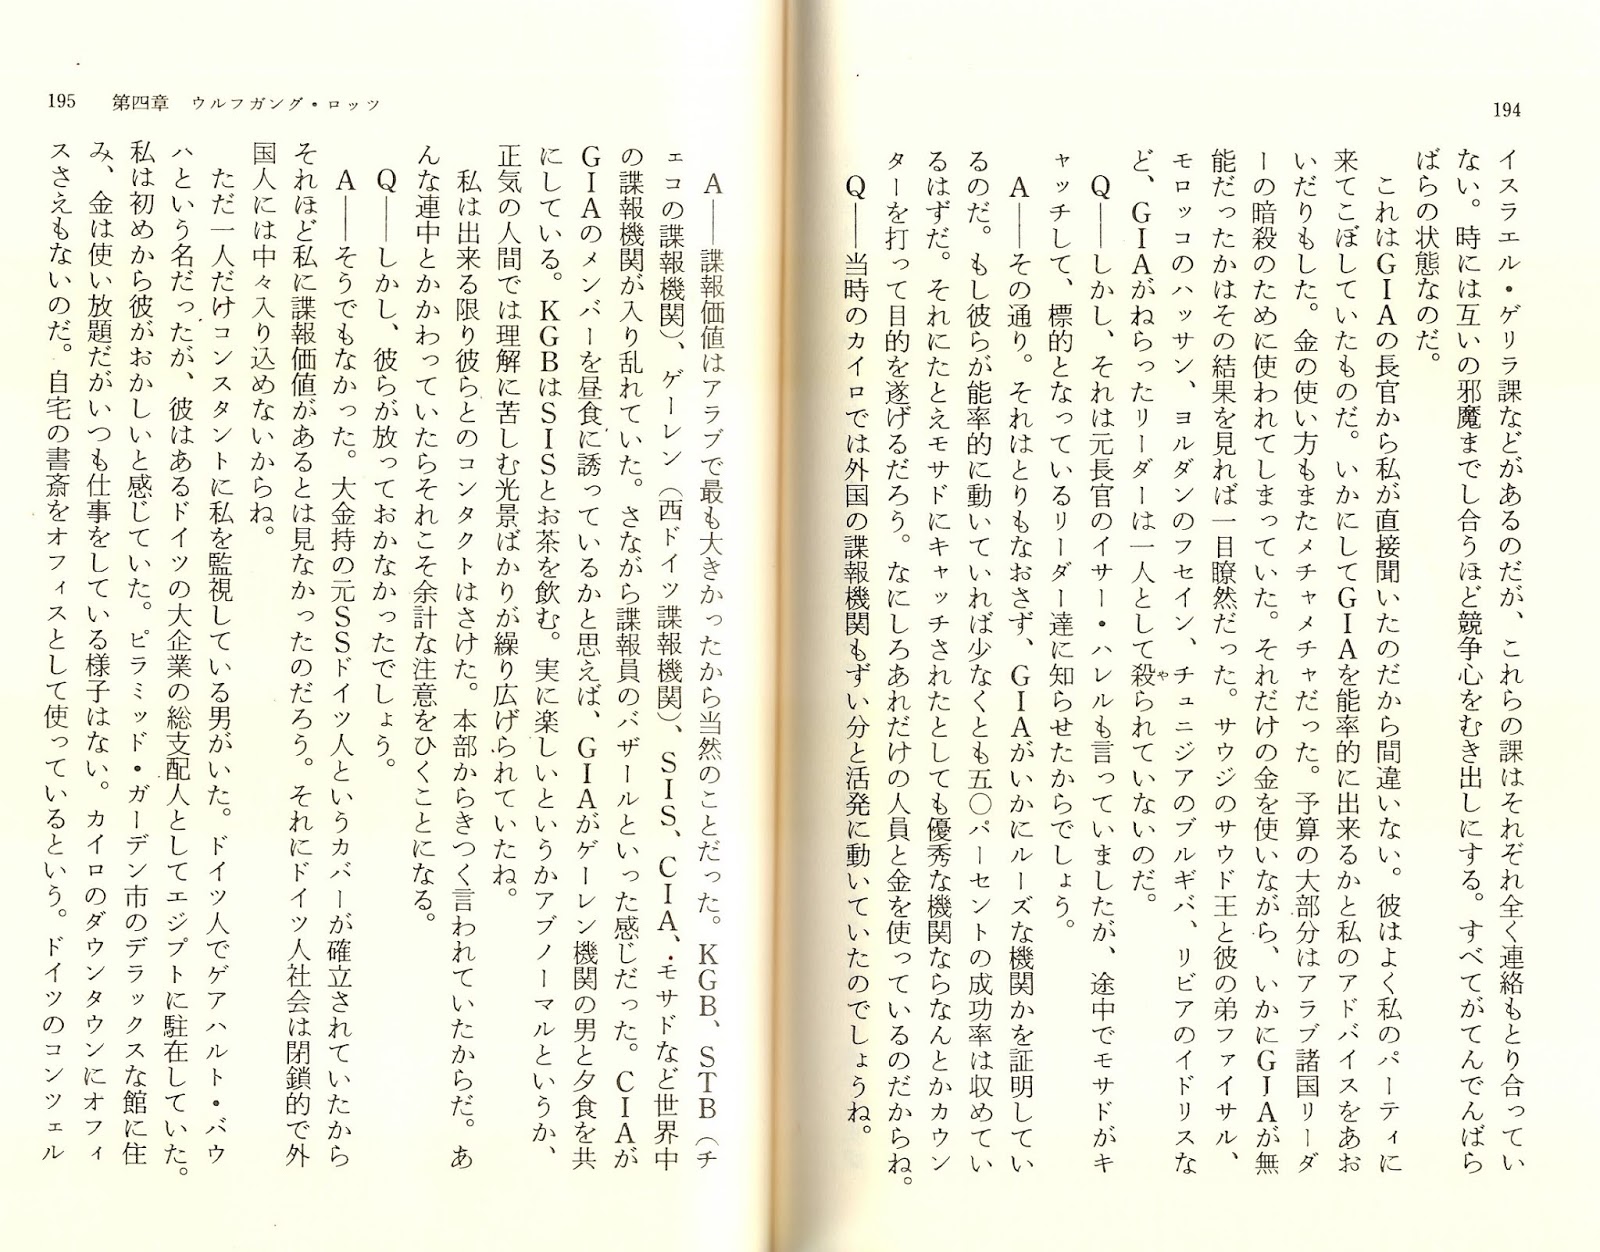 194
イスラエル・ゲリラ課などがあるのだが、これらの課はそれぞれ全く連絡もとり合ってい
ない。時には互いの邪魔までし合うほど競争心をむき出しにする。すべてがてんでんばら
ばらの状態なのだ。
これはGIAの長官から私が直接聞いたのだから間違いない。彼はよく私のパーティに
来てこぼしていたものだ。いかにしてGIAを能率的に出来るかと私のアドバイスをあお
いだりもした。金の使い方もまたメチャメチャだった。予算の大部分はアラブ諸国リーダ
ーの暗殺のために使われてしまっていた。それだけの金を使いながら、いかにGIAが無
能だったかはその結果を見れば一目瞭然だった。サウジのサウド王と彼の弟ファイサル、
モロッコのハッサン、ヨルダンのフセイン、チュニジアのブルギバ、リビアのイドリスな
ど、GIAがねらったリーダーは一人として殺やられていないのだ。
Q――しかし、それは元長官のイサー・ハレルも言っていましたが、途中でモサドがキ
ャッチして、標的となっているリーダー達に知らせたからでしょう。
A――その通り。それはとりもなおさず、GIAがいかにルーズな機関かを証明してい
るのだ。もし彼らが能率的に動いていれば少なくとも五〇パーセントの成功率は収めてい
るはずだ。それにたとえモサドにキャッチされたとしても優秀な機関ならなんとかカウン
ターを打って目的を遂げるだろう。なにしろあれだけの人員と金を使っているのだからね。
Q――当時のカイロでは外国の諜報機関もずい分と活発に動いていたのでしょうね。
195 第四章 ウルフガング・ロッツ
A――諜報価値はアラブで最も大きかったから当然のことだった。KGB、STB（チ
ェコの諜報機関）、ゲーレン（西ドイツ諜報機関）、SIS、CIA、モサドなど世界中
の諜報機関が入り乱れていた。さながら諜報員のバザールといった感じだった。CIAが
GIAのメンバーを昼食に誘っているかと思えば、GIAがゲーレン機関の男と夕食を共
にしている。KGBはSISとお茶を飲む。実に楽しいというかアブノーマルというか、
正気の人間では理解に苦しむ光景ばかりが繰り広げられていたね。
私は出来る限り彼らとのコンタクトはさけた。本部からきつく言われていたからだ。あ
んな連中とかかわっていたらそれこそ余計な注意をひくことになる。
Q――しかし、彼らが放っておかなかったでしょう。
A――そうでもなかった。大金持の元SSドイツ人というカバーが確立されていたから
それほど私に諜報価値があるとは見なかったのだろう。それにドイツ人社会は閉鎖的で外
国人には中々入り込めないからね。
ただ一人だけコンスタントに私を監視している男がいた。ドイツ人でゲアハルト・バウ
ハという名だったが、彼はあるドイツの大企業の総支配人としてエジプトに駐在していた。
私は初めから彼がおかしいと感じていた。ピラミッド・ガーデン市のデラックスな館に住
み、金は使い放題だがいつも仕事をしている様子はない。カイロのダウンタウンにオフィ
スさえもないのだ。自宅の書斎をオフィスとして使っているという。ドイツのコンツェル